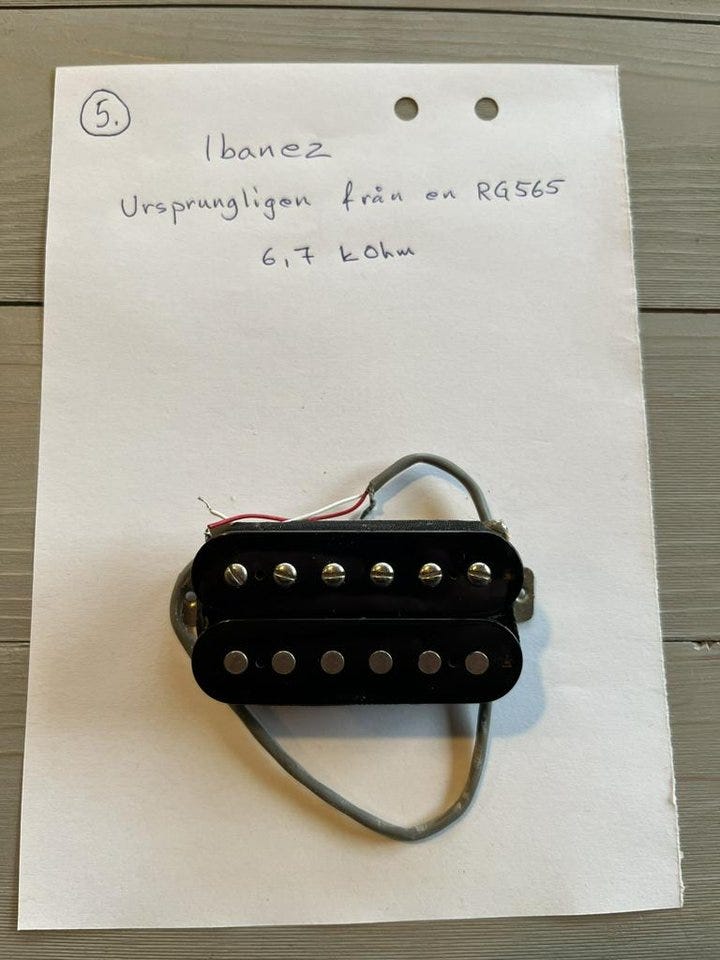 5.
Ibanez
Ursprungligen från en RG565
6,7 kOhm